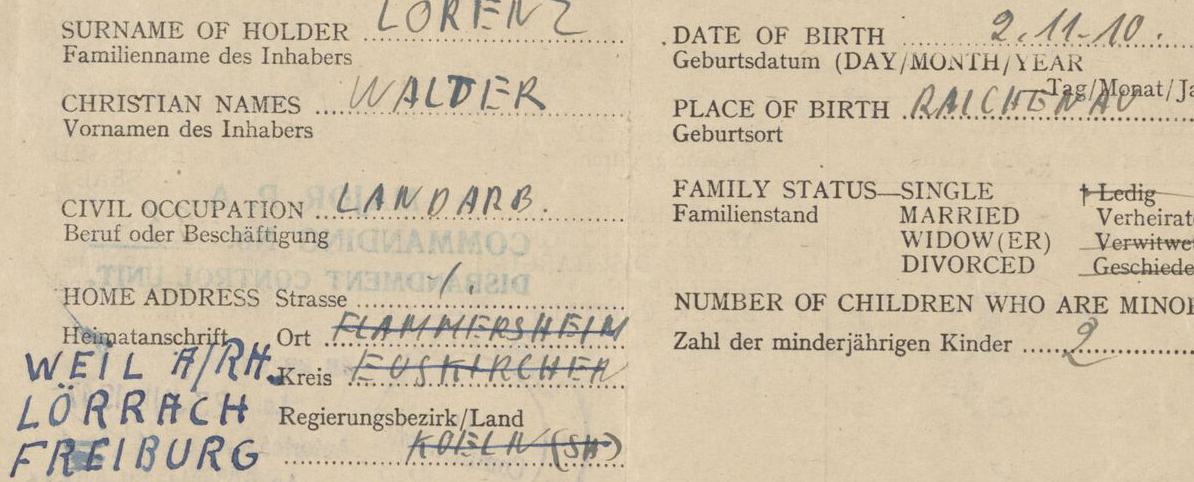 SURNAME OF HOLDER LORENZ
Familienname des Inhabers
CHRISTIAN NAMES WALDER
Vornamen des Inhabers
CIVIL OCCUPATION LANDARB.
Beruf oder Beschäftigung
HOME ADDRESS Strasse /.
Heimatanschrift Ort FLAMMERSHEIM
WEIL A/RH. Kreis EUSKIRCHEN
LÖRRACH Regierungsbezirk/Land
FREIBURG KOELN (SH)
DATE OF BIRTH 2.11.10.
Geburtsdatum (DAY/MONTH/YEAR
Tag/Monat/Ja
PLACE OF BIRTH RAICHENAU
Geburtsort
FAMILY STATUS—SINGLE † Ledig
Familienstand MARRIED Verheirat
WIDOW(ER) Verwitwe
DIVORCED Geschiede
NUMBER OF CHILDREN WHO ARE MINOR
Zahl der minderjährigen Kinder 2
COMMANDING
DISBANDMENT CONTROL UNIT.